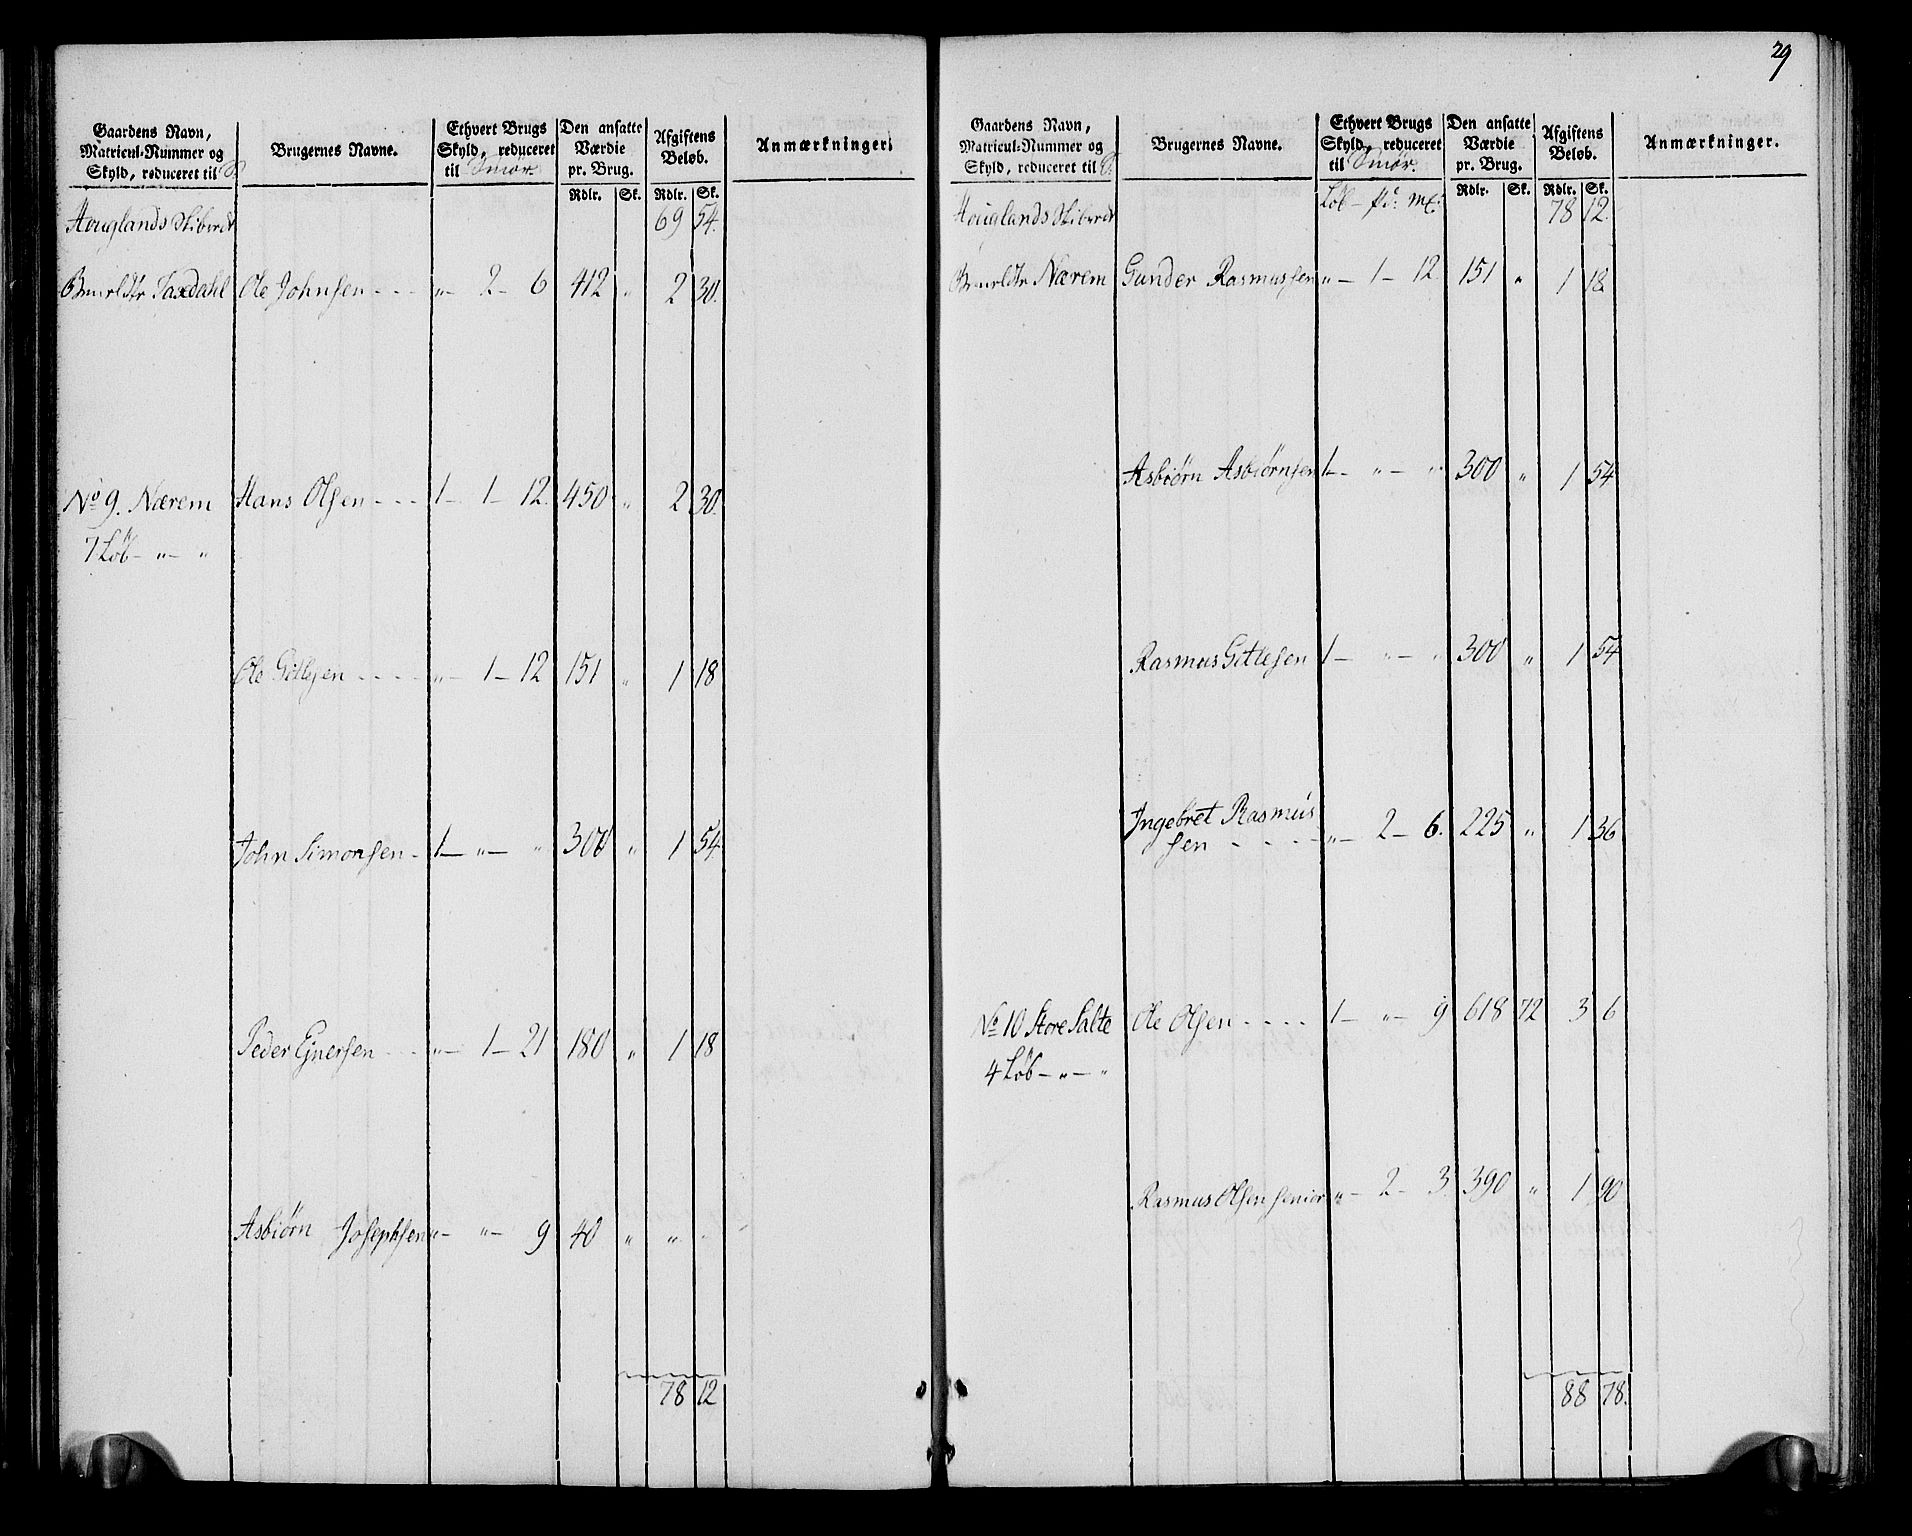 29
Gaardens Navn,
Matricul-Nummer og
Skyld, reduceret til S
Brugernes Navne.
Ethvert Brugs
Skyld, reduceret
til Smør.
Den ansatte
Værdie
pr. Brug.
Rdlr. Sk.
Afgiftens
Beløb.
Rdlr. Sk.
Anmærkninger.
Houglands Skibrede 69 54.
Taxdahl Ole Johnsen - - - „ - 2 - 6 412 „ 2 30.
No 9. Nærem Hans Olsen - - - 1 - 1 - 12. 450 „ 2 30.
7 Løb - „ - „
Ole Gitlesen - - - - „ - 1 - 12 151 „ 1 18
John Simonsen - 1 - „ - „ 300 „ 1 54.
Peder Ejnersen - - - „ - 1 - 21 180 „ 1 18
Asbiørn Josephsen „ - „ - 9 40 „ „ „
78 12
Gaardens Navn,
Matricul-Nummer og
Skyld, reduceret til S
Brugernes Navne.
Ethvert Brugs
Skyld, reduceret
til Smør.
Den ansatte
Værdie
pr. Brug.
Rdlr. Sk.
Afgiftens
Beløb.
Rdlr. Sk.
Anmærkninger.
Houglands Skibrede Løb - pd: mk: 78 12.
Nærem Gunder Rasmussen „ - 1 - 12. 151 „ 1 18.
Asbiørn Asbiørnsen 1 - „ - „ 300 „ 1 54
Rasmus Gitlesen 1 - „ - „ 300 „ 1 54
Ingebret Rasmus
sen - - - - „ - 2 - 6. 225 „ 1 36
No 10 Store Salte Ole Olsen - - - - 1 - „ - 9 618 72 3 6
4 Løb - „ - „
Rasmus Olsen senior „ - 2 - 3. 390 „ 1 90
88 78.